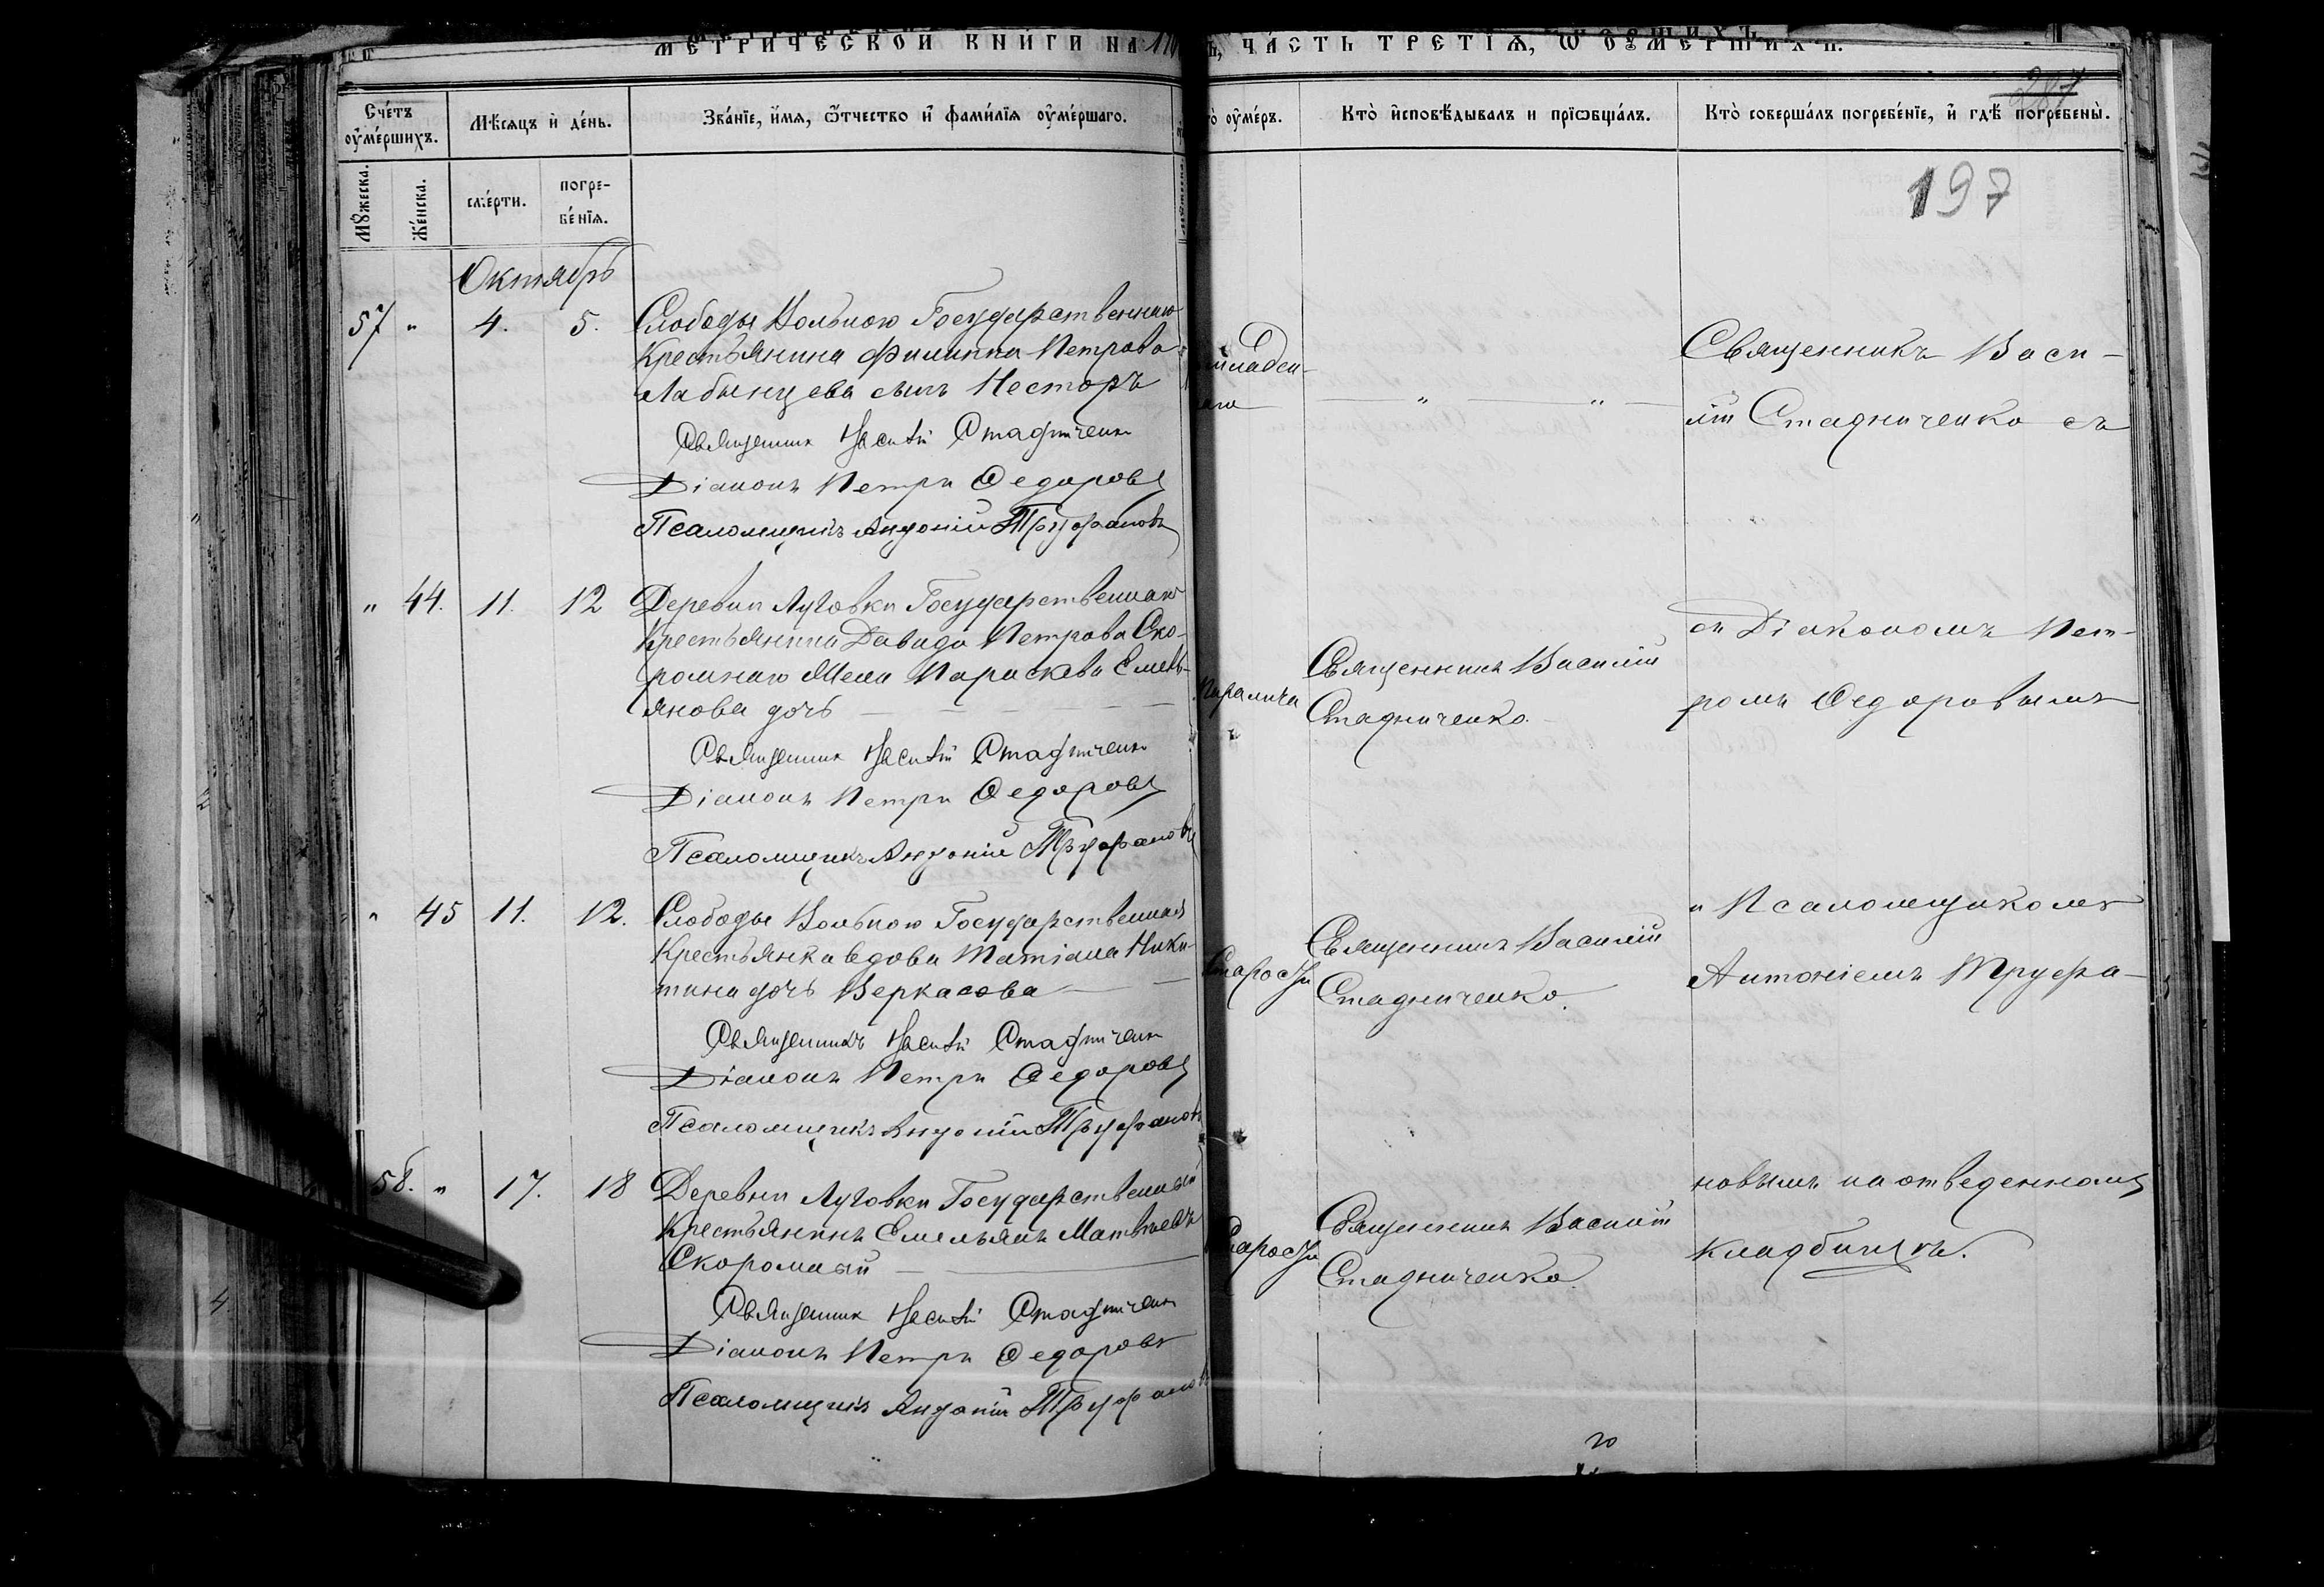 МЕТРИЧЕСКОЙ КНИГИ НА 1
Ъ, ЧАСТЬ ТРЕТІѦ, Ѡ ОУМЕРШИХЪ.
287
197
Сче́тъ оу҆ме́ршихъ.
Мѣ́сяцъ и҆ де́нь.
Зва́нїе, и҆́мѧ, ѻ҆́тчество и҆ фами́лїѧ оу҆ме́ршаго.
оу҆ме́ръ.
Кто̀ и҆сповѣ́дывалъ и прїѡбща́лъ.
Кто̀ соверша́лъ погребе́нїе, и҆ гдѣ̀ погребены̀.
Мꙋжеска.
Же́нска.
сме́рти.
погре-
бе́нїѧ.
Октябрь
57 " 4. 5.
Слободы Вольного Государственнаго
Крестьянина Филиппа Петрова
Лабынцева сынъ Несторъ
Священник Василій Стадниченко
Діаконъ Петръ Федоровъ
Псаломщикъ Антоній Труфановъ
младен-
Священникъ Васи-
лій Стадниченко съ
" 44. 11. 12
Деревни Луговки Государственнаго
Крестьянина Давида Петрова Ско-
ромнаго Жена Параскева Емель-
янова дочь
Священник Василій Стадниченко
Діаконъ Петръ Федоровъ
Псаломщикъ Антоній Труфановъ
Паралича
Священникъ Василій
Стадниченко.
съ Діакономъ Пет-
ромъ Федоровымъ
" 45 11. 12.
Слободы Вольного Государственная
Крестьянка вдова Татіана Ники-
тина дочь Веркасова
Священникъ Василій Стадниченко
Діаконъ Петръ Федоровъ
Псаломщикъ Антоній Труфановъ
Старости
Священникъ Василій
Стадниченко.
и Псаломщикомъ
Антоніемъ Труфа-
58. " 17. 18
Деревни Луговки Государственный
Крестьянинъ Емельянъ Матвѣевъ
Скоромный
Священник Василій Стадниченко
Діаконъ Петръ Федоровъ
Псаломщикъ Антоній Труфановъ
Старости
Священникъ Василій
Стадниченко.
новымъ на отведенномъ
кладбищѣ.